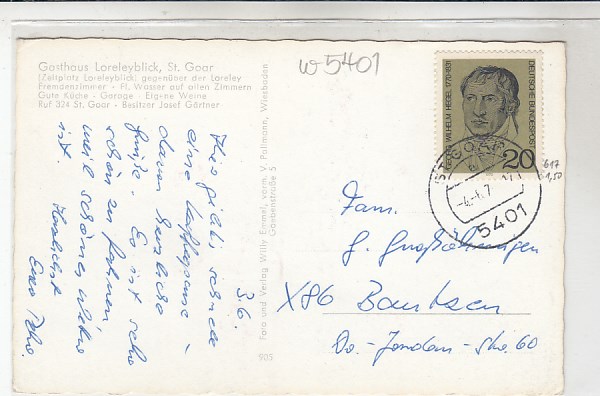 w 5401
Gasthaus Loreleyblick, St. Goar
(Zeltplatz Loreleyblick) gegenüber der Loreley
Fremdenzimmer - Fl. Wasser auf allen Zimmern
Gute Küche - Garage - Eigene Weine
Ruf 324 St. Goar - Besitzer Josef Gärtner
3.6.
Hier gibt's gerade
eine Kaffeepause -
davon herzliche
Grüße. Es ist sehr
schön zu fahren
weil schönes
ist. Herzlichst
Foto und Verlag Willy Emmel, vorm. V. Pollmann, Wiesbaden
Gneisenaustraße 5
905
GEORG WILHELM HEGEL 1770-1831
DEUTSCHE BUNDESPOST
20
ST GOAR
5401
617
1,50
Fam.
G.
X86 Bautzen
Str. 60